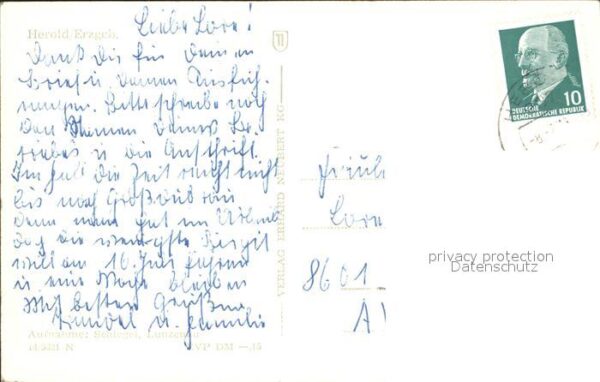 Herold/Erzgeb.
Liebe Lore!
Dank Dir für Deinen
Brief u. Deinen Ausfüh-
rungen. Bitte schreibe noch
den Namen Deines Be-
triebes u die Anschrift.
die Zeit reicht nicht
bis nach
Denn man hat im Urlaub
doch die wenigste Zeit
will am 16. Juli fahren
u eine Woche bleiben
Mit besten Grüßen
u. Familie
Aufnahme: Lunzenau
N VP DM —,15
VERLAG ERHARD NEUBERT KG
10
DEUTSCHE
DEMOKRATISCHE REPUBLIK
Fräul
Lore
8601
A
privacy protection
Datenschutz